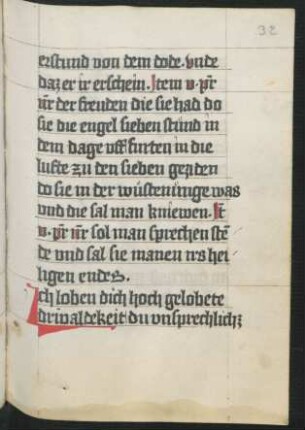 32
erstund von dem dode. vnde
daz er ir erschein. Item v. pr̄
nr̄ der freuden die sie had do
sie die engel sieben stund in
dem dage vff furten in die
lufte zu den sieben geziden
do sie in der wustenunge was
vnd die sal man kniewen. It̄
v. pr̄ nr̄ sol man sprechen sten
de vnd sal sie manen irs hei
ligen endes.
Ich loben dich hoch gelobete
driualdekeit du vnsprechlich